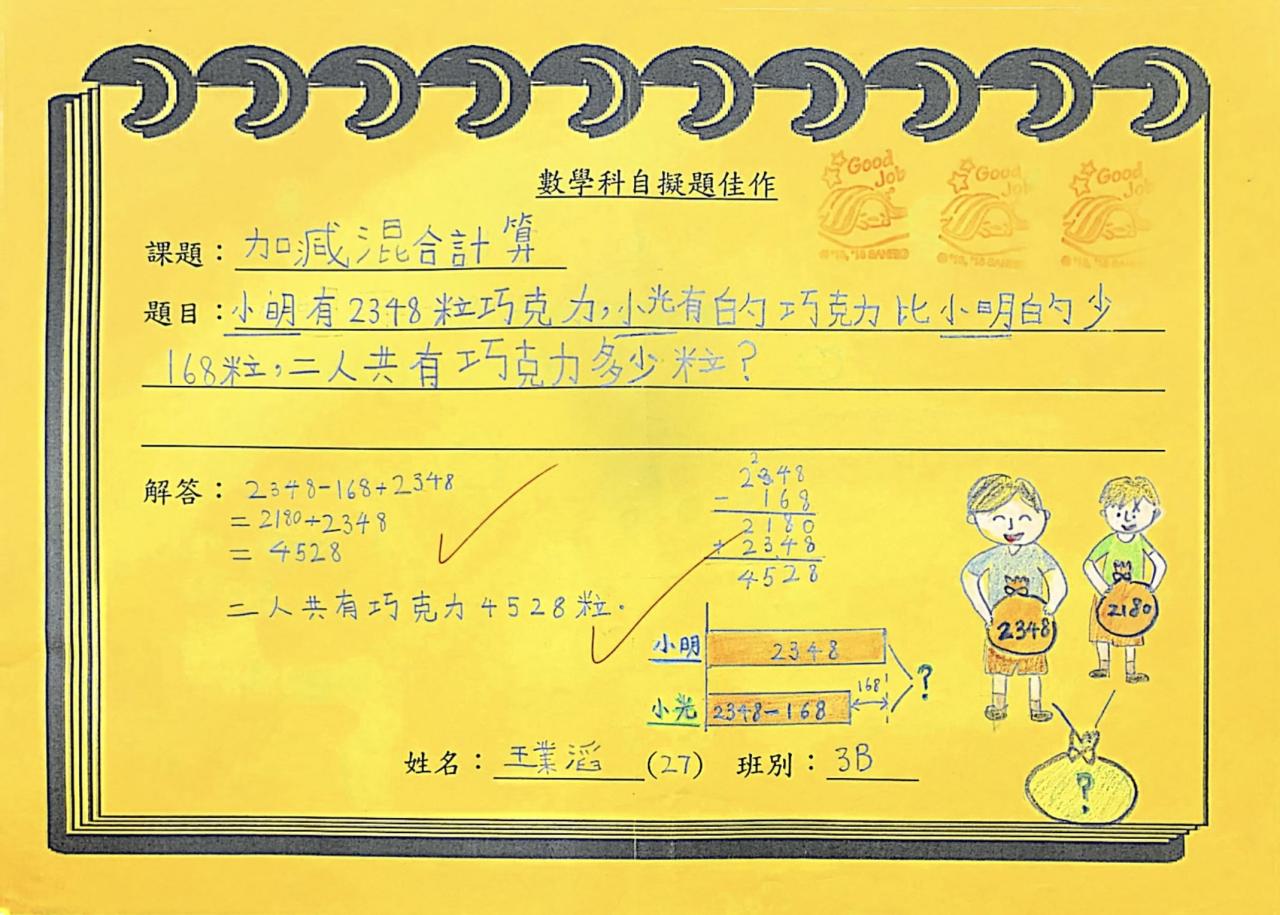 數學科自擬題佳作
Good Job
Good Job
Good Job
課題：加減混合計算
題目：小明有2348粒巧克力，小光有的巧克力比小明的少
168粒，二人共有巧克力多少粒？
解答：2348-168+2348
=2180+2348
=4528
二人共有巧克力4528粒。
2348
- 168
2180
+ 2348
4528
小明 2348
小光 2348-168
168
?
2348
2180
?
姓名：王業滔 (27) 班別：3B